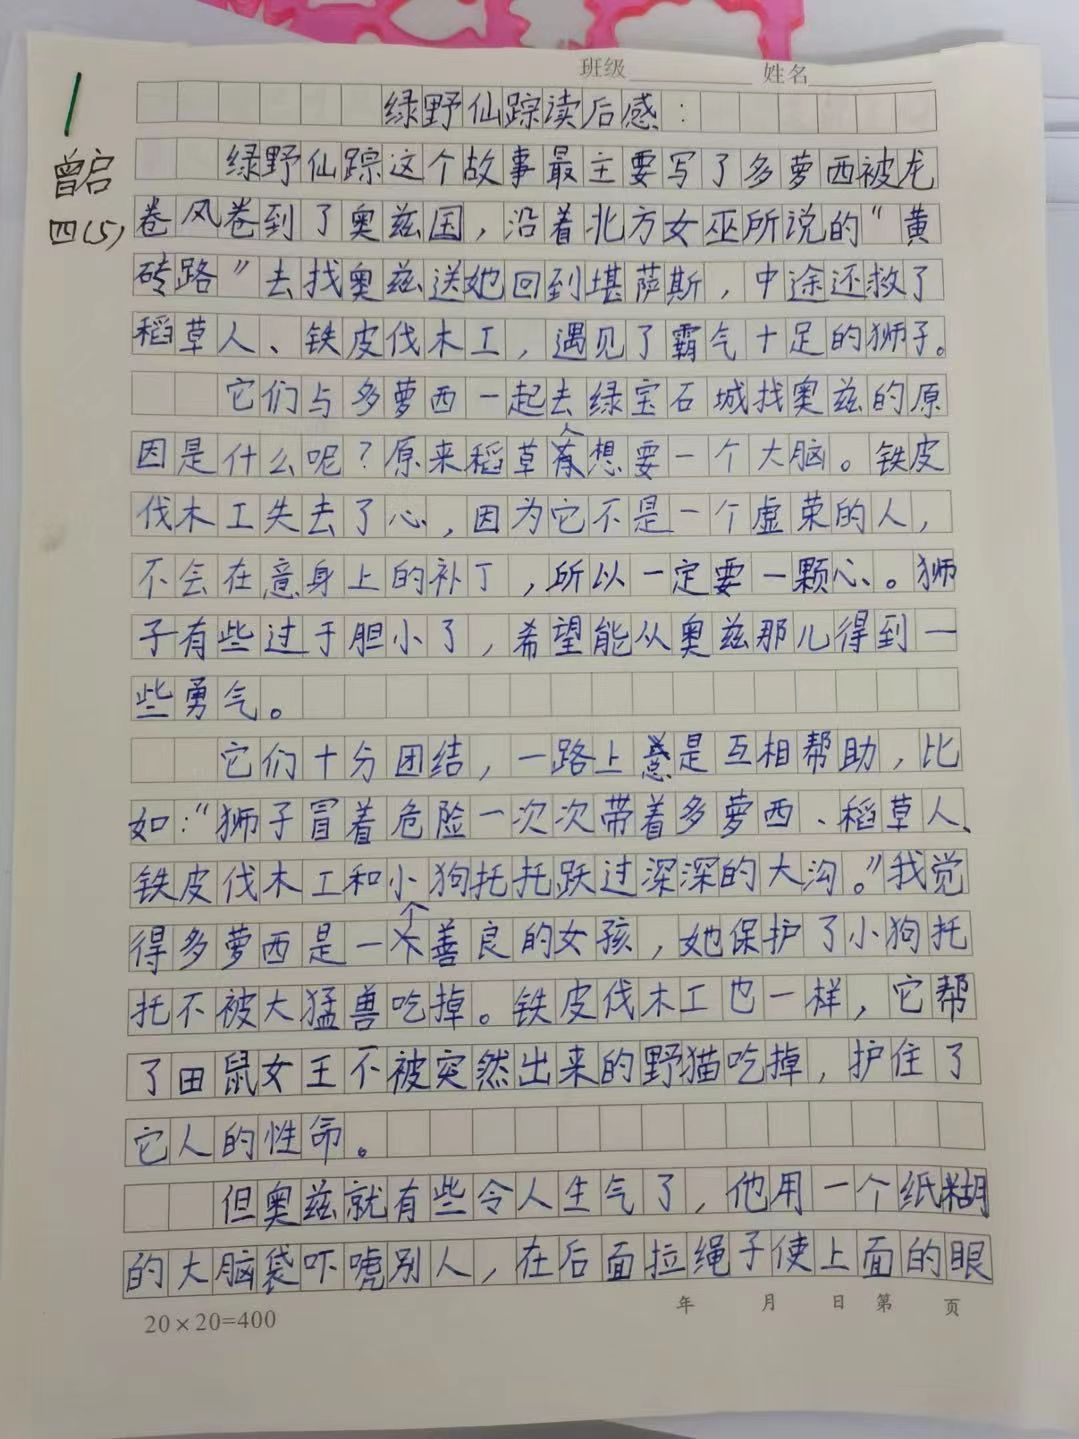 班级 姓名
1
曾启
四(5)
绿野仙踪读后感：
绿野仙踪这个故事最主要写了多萝西被龙
卷风卷到了奥兹国，沿着北方女巫所说的“黄
砖路”去找奥兹送她回到堪萨斯，中途还救了
稻草人、铁皮伐木工，遇见了霸气十足的狮子。
它们与多萝西一起去绿宝石城找奥兹的原
因是什么呢？原来稻草人想要一个大脑。铁皮
伐木工失去了心，因为它不是一个虚荣的人，
不会在意身上的补丁，所以一定要一颗心。狮
子有些过于胆小了，希望能从奥兹那儿得到一
些勇气。
它们十分团结，一路上总是互相帮助，比
如：“狮子冒着危险一次次带着多萝西、稻草人、
铁皮伐木工和小狗托托跃过深深的大沟。”我觉
得多萝西是一个善良的女孩，她保护了小狗托
托不被大猛兽吃掉。铁皮伐木工也一样，它帮
了田鼠女王不被突然出来的野猫吃掉，护住了
它人的性命。
但奥兹就有些令人生气了，他用一个纸糊
的大脑袋吓唬别人，在后面拉绳子使上面的眼
20×20=400 年 月 日 第 页